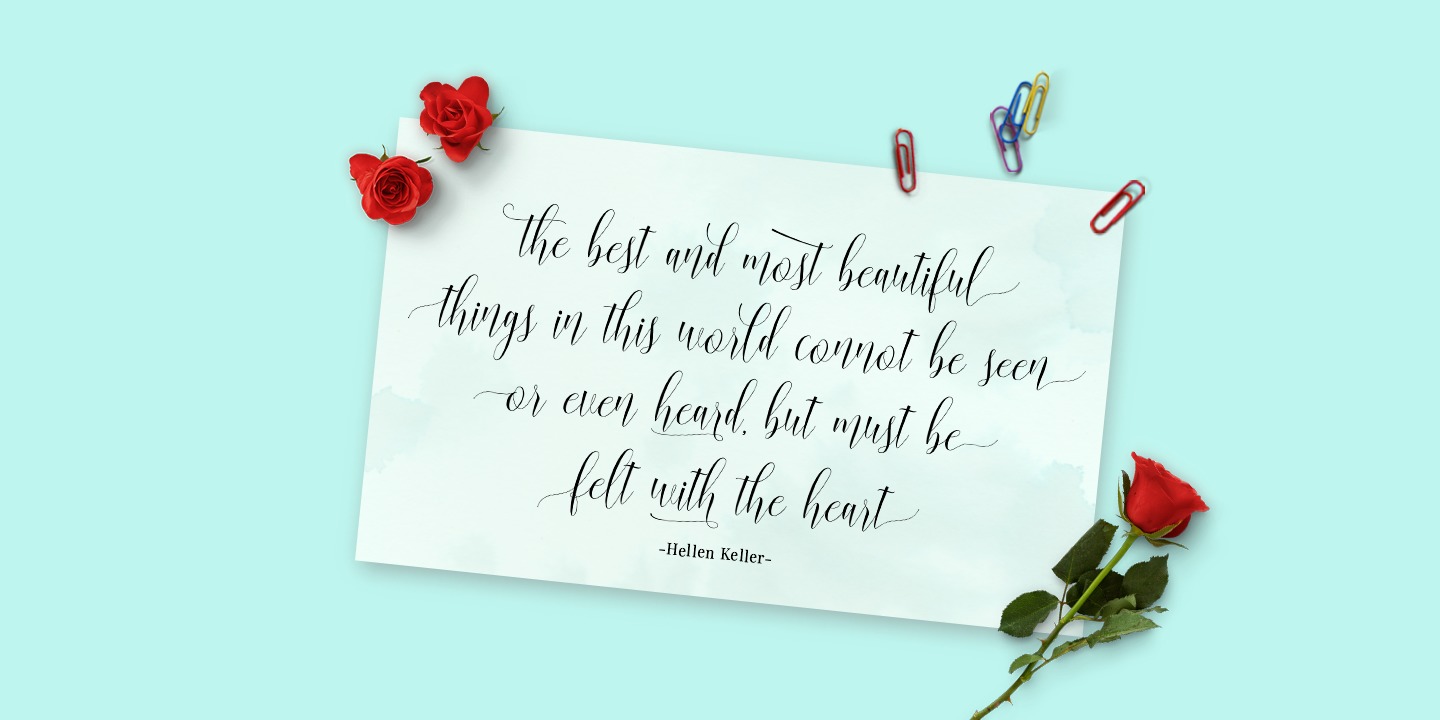 the best and most beautiful
things in this world connot be seen
or even heard, but must be
felt with the heart
-Hellen Keller-